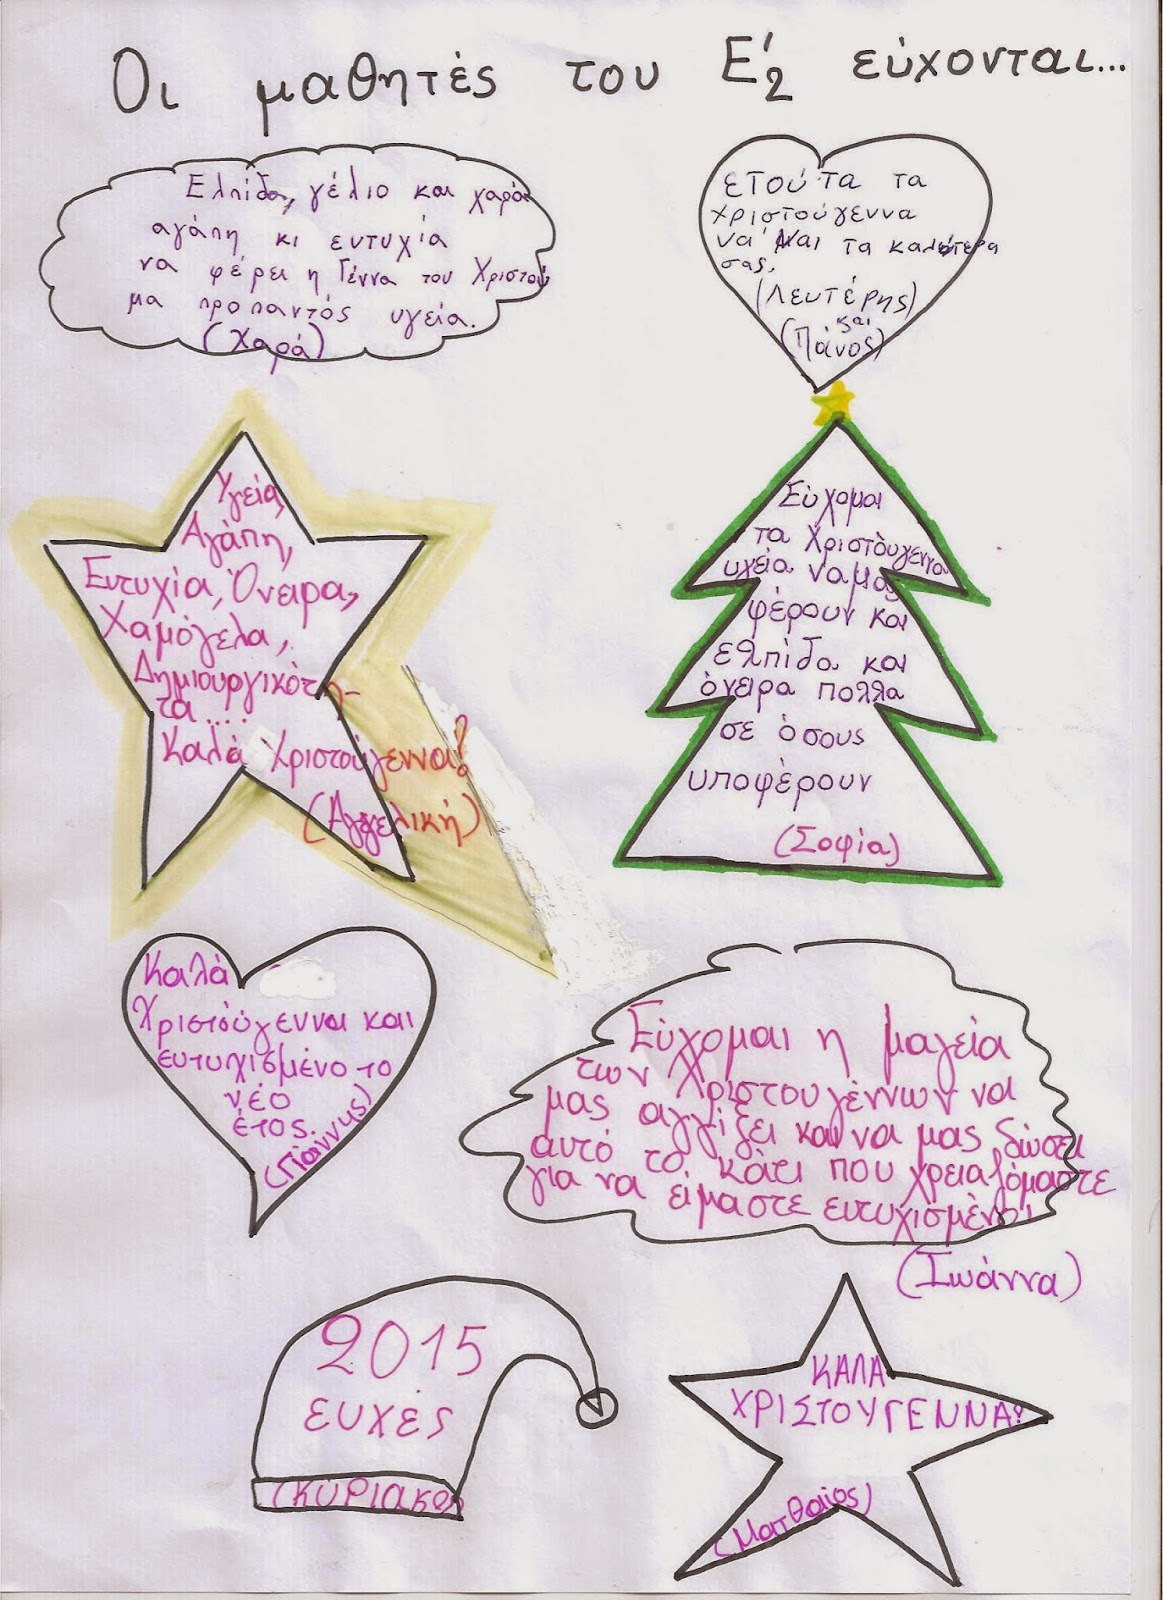 Οι μαθητές του Ε'2 εύχονται...
Ελπίδα, γέλιο και χαρά
αγάπη κι ευτυχία
να φέρει η Γέννα του Χριστού
μα προπαντός υγεία.
(Χαρά)
ετούτα τα
χριστούγεννα
να 'ναι τα καλύτερα
σας.
(Λευτέρης)
και
(Πάνος)
Υγεία,
Αγάπη,
Ευτυχία, Όνειρα,
Χαμόγελα,
Δημιουργικότη-
τα....
Καλά Χριστούγεννα!
(Αγγελική)
Εύχομαι
τα Χριστούγεννα
υγεία να μας
φέρουν και
ελπίδα και
όνειρα πολλα
σε όσους
υποφέρουν
(Σοφία)
Καλά
Χριστούγεννα και
ευτυχισμένο το
νέο
έτος.
(Γιάννης)
Εύχομαι η μαγεία
των Χριστουγέννων να
μας αγγίξει και να μας δώσει
αυτό το κάτι που χρειαζόμαστε
για να είμαστε ευτυχισμένοι
(Ιωάννα)
2015
ευχές
(Κύριακος
ΚΑΛΑ
ΧΡΙΣΤΟΥΓΕΝΝΑ!
(Ματθαίος)